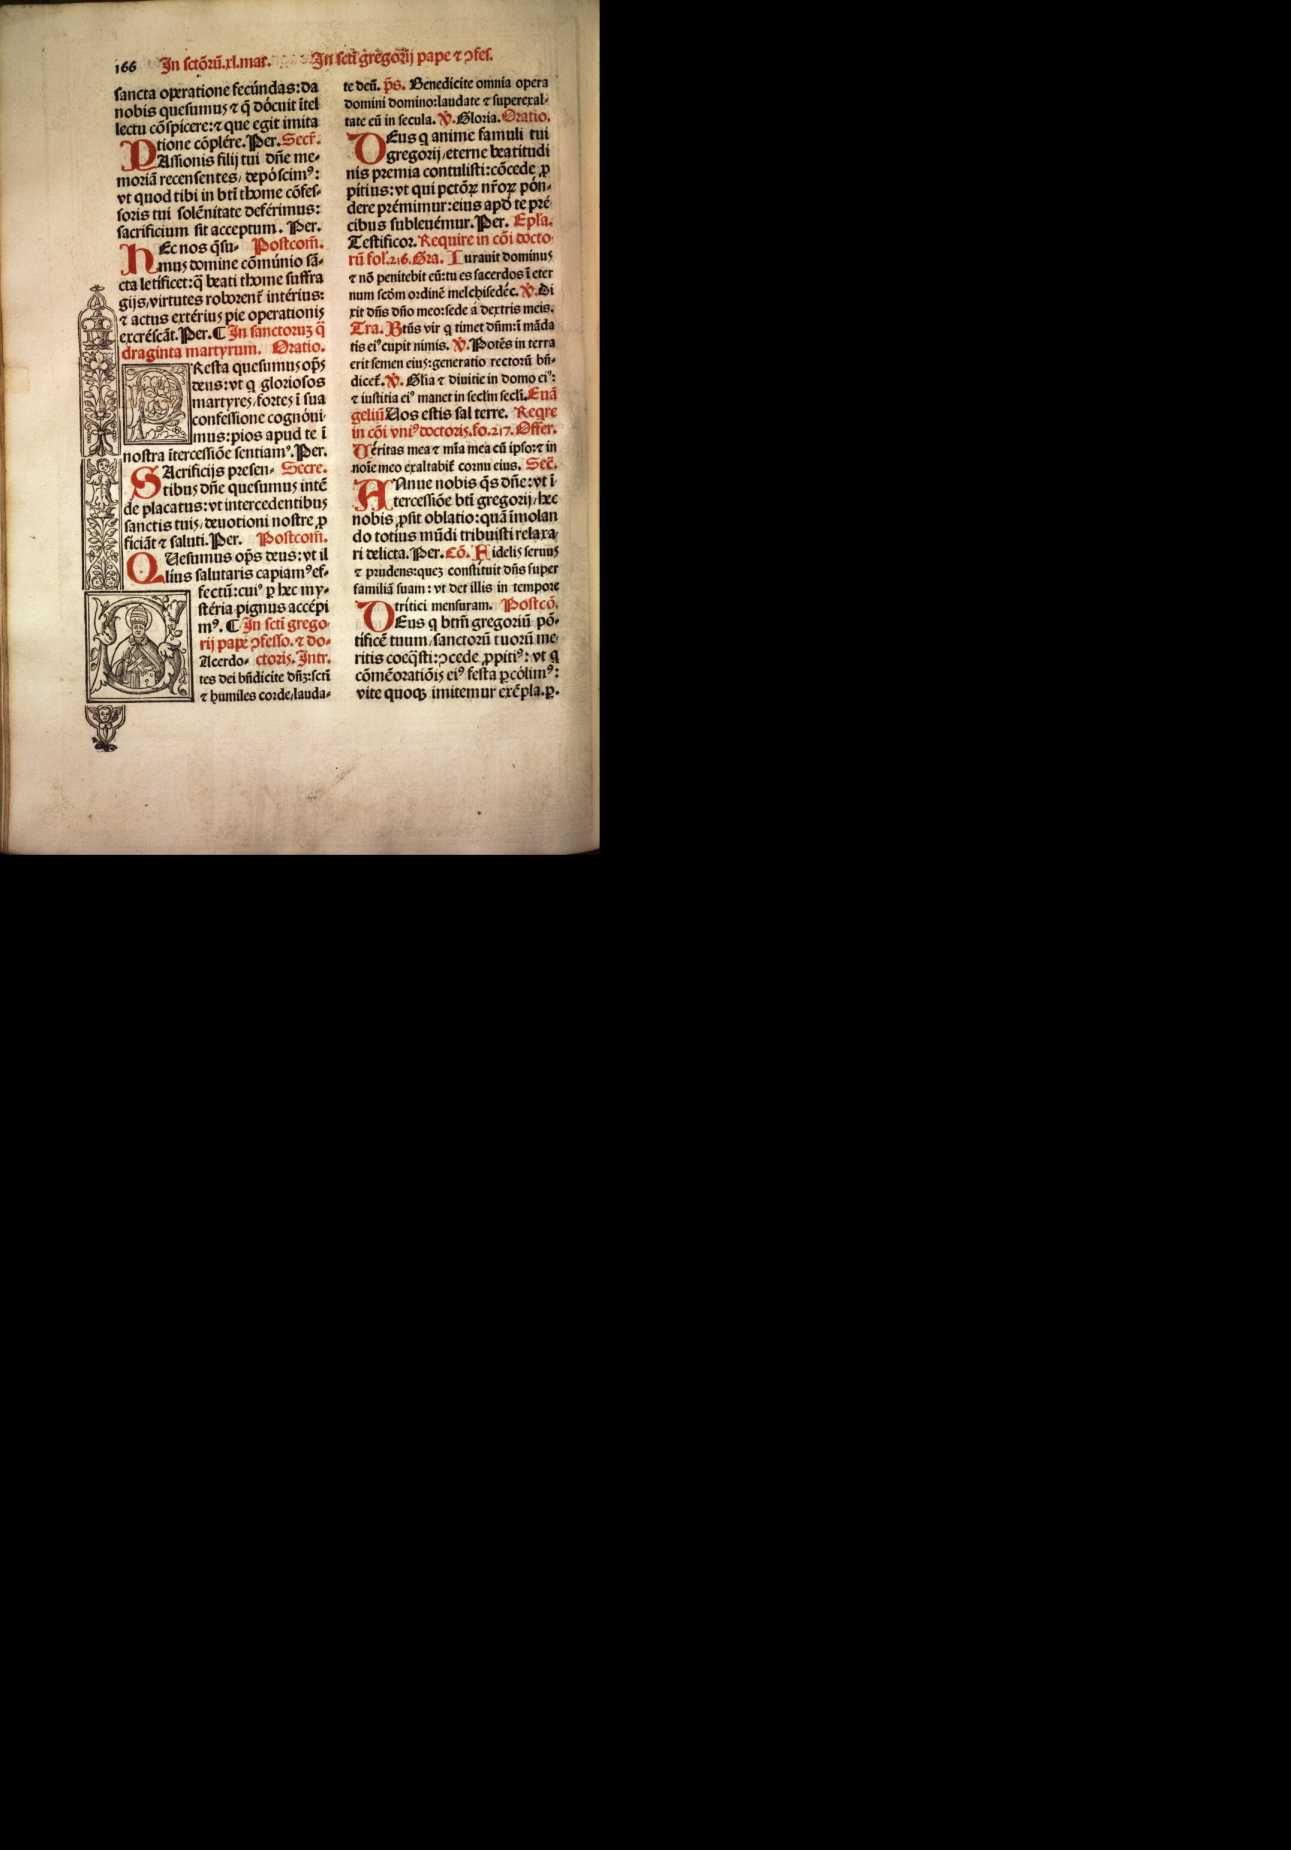 166 In sctōrū.xl.mar. In scti gregorij pape ⁊ ꝯfes.
sancta operatione fecúndas:da
nobis quesumus ⁊ q̄ dócuit ītel
lectu cōspicere:⁊ que egit imita
tione cōplére.Per.Secr̄.
PAssionis filij tui dn̄e me-
moriā recensentes/ depóscimꝰ:
vt quod tibi in bt̄i thome cōfes-
soris tui solēnitate deférimus:
sacrificium sit acceptum. Per.
HEc nos q̄su- Postcom̄.
mus domine cōmúnio sā-
cta letificet:q̄ beati thome suffra
gijs/virtutes roborent̄ intérius:
⁊ actus extérius pie operationis
excréscāt.Per.¶ In sanctorum q̄
draginta martyrum. Oratio.
PResta quesumus op̄s
deus:vt q gloriosos
martyres/fortes ī sua
confessione cognóui-
mus:pios apud te ī
nostra ītercessiōe sentiamꝰ.Per.
SAcrificijs presen- Secre.
tibus dn̄e quesumus intē
de placatus:vt intercedentibus
sanctis tuis/deuotioni nostre ꝓ
ficiāt ⁊ saluti.Per. Postcom̄.
QUesumus op̄s deus:vt il
lius salutaris capiamꝰ ef-
fectū:cuiꝰ ꝑ hec my-
stéria pignus accépi
mꝰ. ¶ In scti grego
rij pape ꝯfesso. ⁊ do-
SAcerdo- ctoris. Intr.
tes dei bn̄dicite dn̄ꝫ:scti
⁊ humiles corde/lauda-
te deū. p̄s. Benedicite omnia opera
domini domino:laudate ⁊ superexal-
tate eū in secula. ℣.Gloria.Oratio.
DEus q anime famuli tui
gregorij/eterne beatitudi
nis premia contulisti:cōcede ꝓ
pitius:vt qui pctōꝝ nr̄oꝝ pón-
dere prémimur:eius apd̄ te pré
cibus subleuémur.Per. Epl̄a.
Testificor.Require in cōi docto
rū fol.216.Gra. Iurauit dominus
⁊ nō penitebit eū:tu es sacerdos ī eter
num scd̄m ordinē melchisedéc. ℣.Di
xit dn̄s dn̄o meo:sede a dextris meis.
Tra. Bt̄us vir q timet dn̄m:ī māda
tis eiꝰ cupit nimis. ℣.Potēs in terra
erit semen eius:generatio rectorū bn̄-
dicet̄.℣. Gl̄ia ⁊ diuitie in domo eiꝰ:
⁊ iustitia eiꝰ manet in secl̄m secl̄i.Euā
geliū Uos estis sal terre. Reqre
in cōi vniꝰ doctoris.fo.217.Offer.
Uéritas mea ⁊ mīa mea cū ipso:⁊ in
noīe meo exaltabit̄ cornu eius. Sec̄.
ANnue nobis q̄s dn̄e:vt ī
tercessiōe bt̄i gregorij/hec
nobis ꝓsit oblatio:quā īmolan
do totius mūdi tribuisti relaxa
ri delicta.Per.Cō. Fidelis seruus
⁊ prudens:quez constituit dn̄s super
familiā suam : vt det illis in tempore
tritici mensuram. Postcō.
DEus q btm̄ gregoriū pō-
tificē tuum/sanctorū tuorū me-
ritis coeq̄sti:ꝯcede ꝓpitiꝰ: vt q
cōmēoratiōis eiꝰ festa ꝑcólimꝰ:
vite quoqꝫ imitemur exēpla.ꝑ.